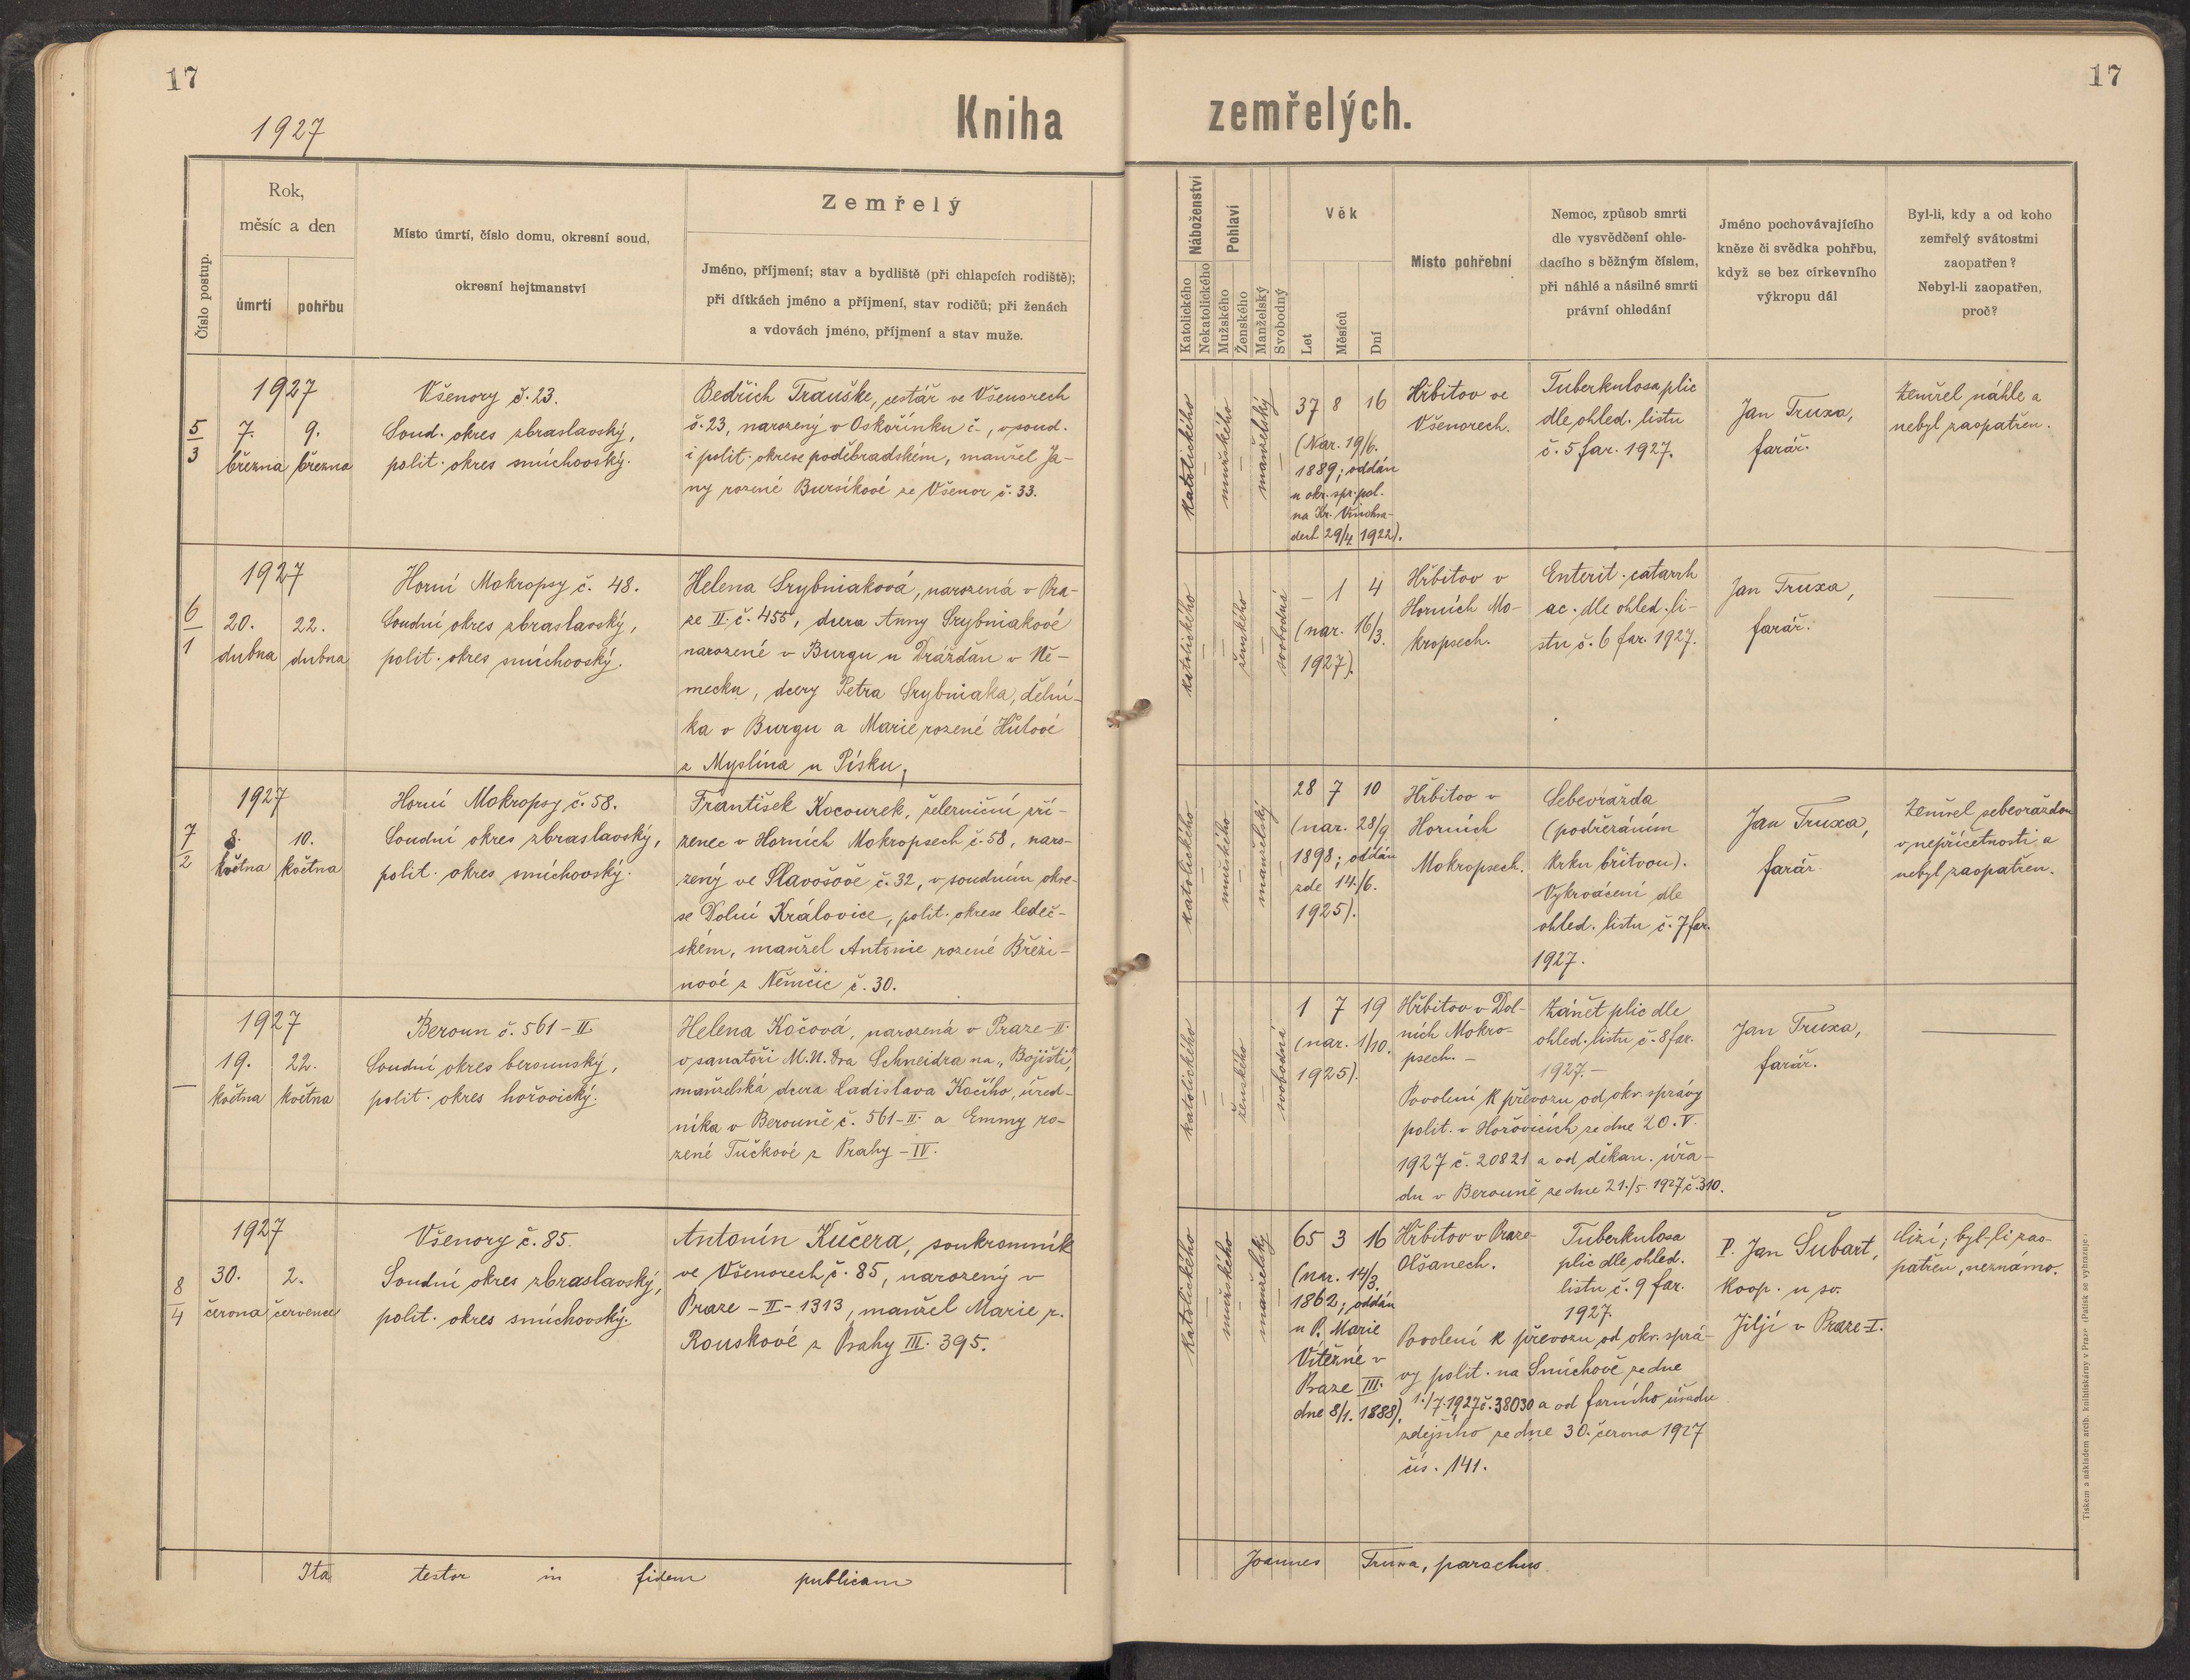 17
1927
Kniha
Číslo postup.
Rok,
měsíc a den
úmrtí
pohřbu
Místo úmrtí, číslo domu, okresní soud,
okresní hejtmanství
Zemřelý
Jméno, příjmení; stav a bydliště (při chlapcích rodiště);
při dítkách jméno a příjmení, stav rodičů; při ženách
a vdovách jméno, příjmení a stav muže.
5
3
1927
7.
března
9.
března
Všenory č. 23.
Soud. okres zbraslavský,
polit. okres smíchovský.
Bedřich Trauške, cestář ve Všenorech
č. 23, narozený v Oskořínku č -, v soud.
i polit. okrese poděbradském, manžel Ja-
ny rozené Bursíkové ze Všenor č. 33.
6
1
1927
20.
dubna
22.
dubna
Horní Mokropsy č. 48.
Soudní okres zbraslavský,
polit. okres smíchovský.
Helena Srybniaková, narozená v Pra-
ze II. č. 455, dcera Anny Srybniakové
narozené v Burgu u Drážďan v Ně-
mecku, dcery Petra Srybniaka, dělní-
ka v Burgu a Marie rozené Hůlové
z Myslína u Písku.
7
2
1927
8.
května
10.
května
Horní Mokropsy č. 58.
Soudní okres zbraslavský,
polit. okres smíchovský.
František Kocourek, železniční zří-
zenec v Horních Mokropsech č. 58, naro-
zený ve Slavošově č. 32, v soudním okre-
se Dolní Královice, polit. okrese ledeč-
ském, manžel Antonie rozené Březi-
nové z Němčic č. 30.
—
1927
19.
května
22.
května
Beroun č. 561 - II.
Soudní okres berounský,
polit. okres hořovický.
Helena Kočová, narozená v Praze - II.
v sanatoři M.U. Dra Schneidra na „Bojišti",
manželská dcera Ladislava Kočího, úřed-
níka v Berouně č. 561 - II. a Emmy ro-
zené Tučkové z Prahy - IV.
8
4
1927
30.
června
2.
července
Všenory č. 85.
Soudní okres zbraslavský,
polit. okres smíchovský.
Antonín Kučera, soukromník
ve Všenorech č. 85, narozený v
Praze - II - 1313, manžel Marie r.
Rouskové z Prahy III. 395.
Ita testor in fidem publicam
17
zemřelých.
Náboženství
Katolického
Nekatolického
Pohlaví
Mužského
Ženského
Manželský
Svobodný
Věk
Let
Měsíců
Dní
Místo pohřební
Nemoc, způsob smrti
dle vysvědčení ohle-
dacího s běžným číslem,
při náhlé a násilné smrti
právní ohledání
Jméno pochovávajícího
kněze či svědka pohřbu,
když se bez církevního
výkropu dál
Byl-li, kdy a od koho
zemřelý svátostmi
zaopatřen?
Nebyl-li zaopatřen,
proč?
katolického
—
mužského
—
manželský
—
37 8 16
(Nar. 19/6.
1889; oddán
u okr. spr. pol.
na Kr. Vinohra-
dech 29/4 1922).
Hřbitov ve
Všenorech.
Tuberkulosa plic
dle ohled. listu
č. 5 far. 1927.
Jan Truxa,
farář.
Zemřel náhle a
nebyl zaopatřen.
katolického
—
—
ženského
—
svobodná
— 1 4
(nar. 16/3.
1927).
Hřbitov v
Horních Mo-
kropsech.
Enterit. catarrh
ac. dle ohled. li-
stu č. 6 far. 1927.
Jan Truxa,
farář.
—
katolického
—
mužského
—
manželský
—
28 7 10
(nar. 28/9
1898; oddán
zde 14./6.
1925).
Hřbitov v
Horních
Mokropsech.
Sebevražda
(podřezáním
krku břitvou).
Vykrvácení dle
ohled. listu č. 7 far.
1927.
Jan Truxa,
farář
Zemřel sebevraždou
v nepříčetnosti a
nebyl zaopatřen.
katolického
—
—
ženského
—
svobodná
1 7 19
(nar. 1/10.
1925).
Hřbitov v Dol-
ních Mokro-
psech. -
Zánět plic dle
ohled. listu č. 8 far.
1927. -
Povolení k převozu od okr. správy
polit. v Hořovicích ze dne 20. V.
1927 č. 20821 a od děkan. úřa-
du v Berouně ze dne 21./5. 1927 č. 310.
Jan Truxa,
farář.
—
katolického
—
mužského
—
manželský
—
65 3 16
(nar. 14/3.
1862; oddán
u P. Marie
Vítězné v
Praze III.
dne 8/1. 1888).
Hřbitov v Praze-
Olšanech.
Tuberkulosa
plic dle ohled.
listu č. 9 far.
1927.
Povolení k převozu od okr. sprá-
vy polit. na Smíchově ze dne
1./7. 1927 č. 38030 a od farního úřadu
zdejšího ze dne 30. června 1927
čís. 141.
P. Jan Šubart,
koop. u sv.
Jiljí v Praze-I.
Cizí; byl-li zao-
patřen, neznámo.
Joannes Truxa, parochus.
Tiskem a nákladem arcib. knihtiskárny v Praze (Patisk se vyhrazuje)